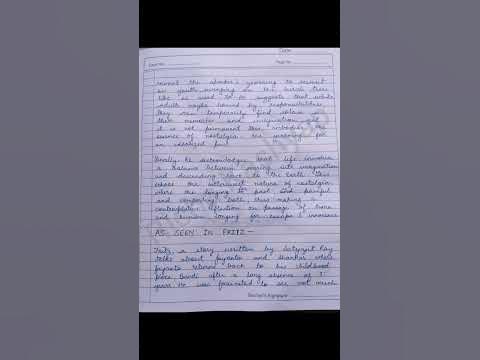 Date
Expt. No.
Page No.
reveal the speaker's yearning to revisit
his youth swinging on the birch trees
like he used to. He suggests that while
adults maybe bound by responsibilities
they can temporarily find solace in
their memories and imagination yet
it is not permanent thus, embodies the
essence of nostalgia - the yearning for
an idealized past.
Finally he acknowledges that life involves
a balance between soaring with imagination
and descending back to the Earth. Thus
echoes the bittersweet nature of nostalgia
where one longing to past and painful
and comforting both, thus making a
contemplative reflection on passage of time
and human longing for escape & innocence
AS SEEN IN FRITZ -
Fritz, a story written by Satyajit Ray
talks about Jayanto and Shankar where
Jayanto returned back to his childhood
place Bundi after a long absence of 31
years. He was fascinated to see not much
Teacher's Signature